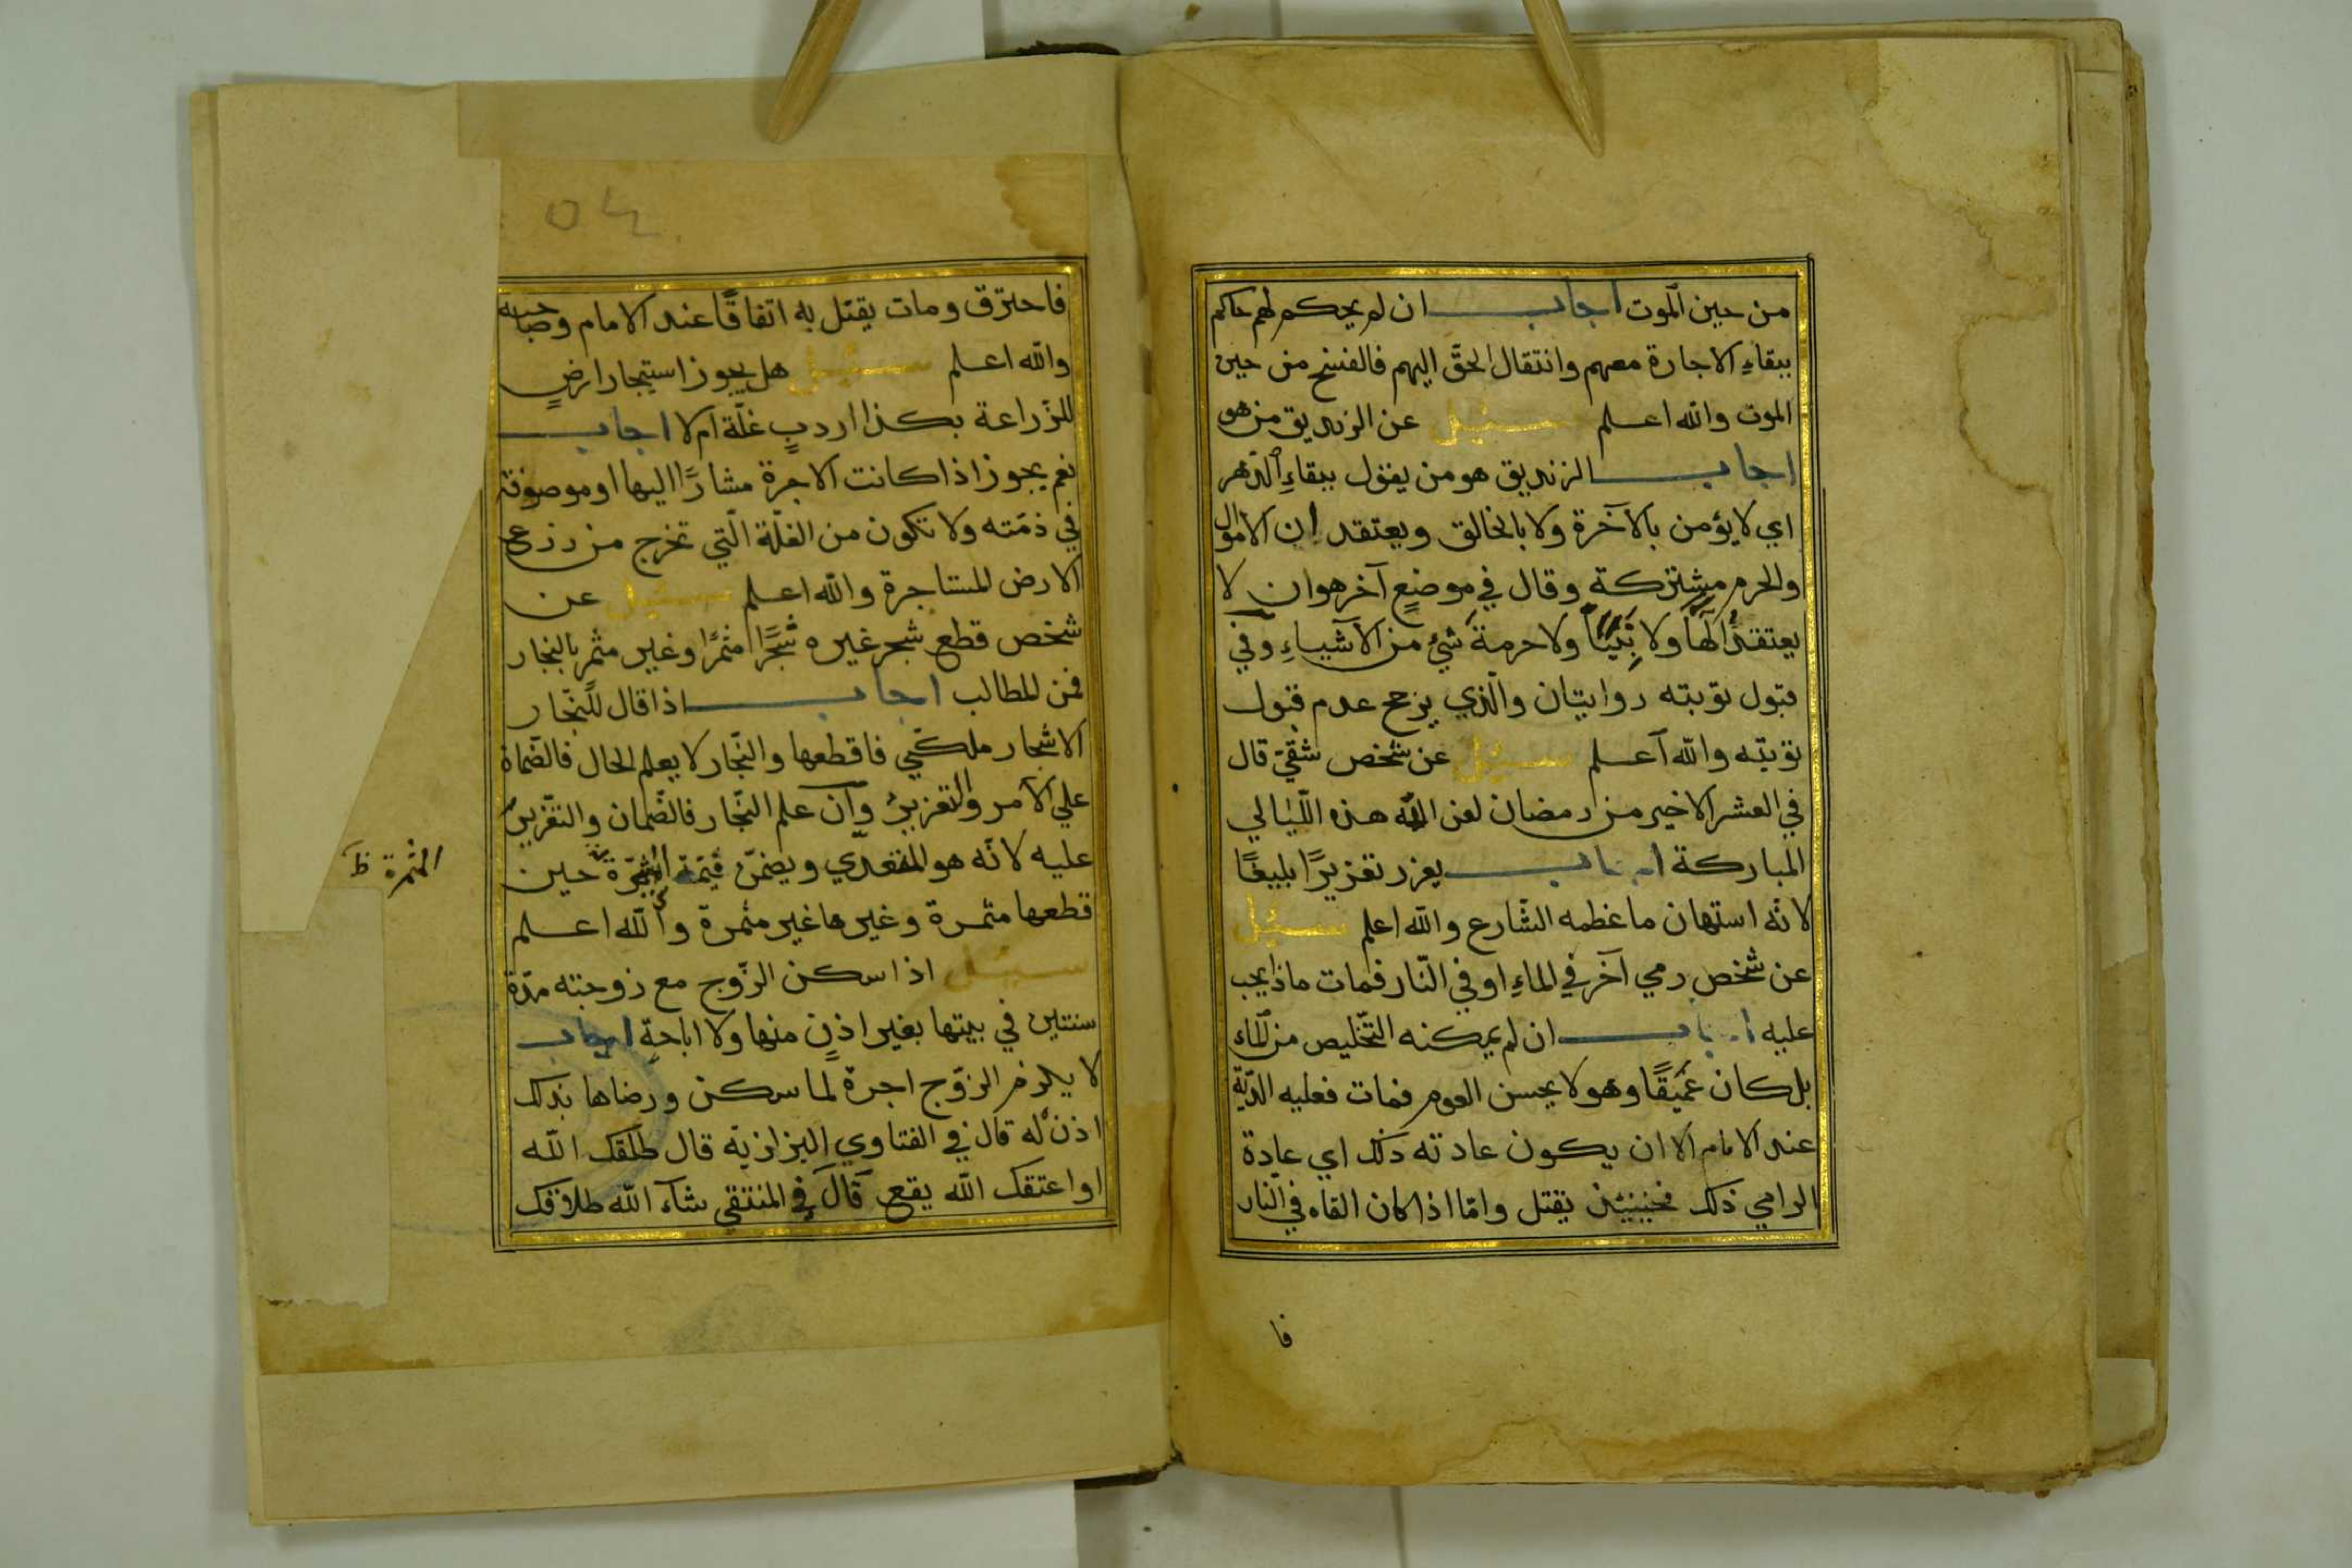 من حين الموت اجاب ان لم يحكم لهم حاكم
ببقاءِ الاجارة معهم وانتقال الحقّ اليهم فالفسخ من حين
الموت والله اعلم سئيل عن الزنديق من هو
اجاب الزنديق هو من يقول ببقاءِ الدّهر
اي لا يؤمن بالآخرة ولا بالخالق ويعتقد ان الاموال
والحرم مشتركة وقال في موضعٍ آخر هو ان لا
يعتقد الهًا ولا نبيًّا ولا حرمة شيء من الاشياءِ وفي
قبول توبته روايتان والّذي يرجح عدم قبول
توبته والله اعلم سئيل عن شخص شقيّ قال
في العشر الاخير من رمضان لعن الله هذه اللّيالي
المباركة اجاب يعزر تعزيرًا بليغًا
لانّه استهان ما عظمه الشّارع والله اعلم سئيل
عن شخص رمي آخر في الماءِ او في النّار فمات ماذا يجب
عليه اجاب ان لم يمكنه التّخليص من الماء
بل كان عميقًا وهو لا يحسن العوم فمات فعليه الدّية
عند الامام الا ان يكون عادته ذلك اي عادة
الرامي ذلك فحينئذ يقتل وامّا اذا كان القاه في النّار
فا
فاحترق ومات يقتل به اتفاقًا عند الامام وصاحبيه
والله اعلم سئيل هل يجوز استيجار ارضٍ
للزّراعة بكذا اردبٍ غلّة ام لا اجاب
نعم يجوز اذا كانت الاجرة مشارًا اليها او موصوفة
في ذمّته ولا تكون من الغلّة الّتي تخرج من زرع
الارض المستاجرة والله اعلم سئيل عن
شخص قطع شجر غيره شجرًا مثمرًا وغير مثمر بالنجار
فمن المطالب اجاب اذا قال للنّجار
الاشجار ملكي فاقطعها والنّجار لا يعلم الحال فالضّمان
علي الآمر والتعزير وان علم النّجار فالضّمان والتعزير
عليه لانّه هو المتعدّي ويضمّن قيمة الشّجرة حين
قطعها مثمرة وغيرها غير مثمرة والله اعلم
سئيل اذا سكن الزّوج مع زوجته مدّة
سنتين في بيتها بغير اذنٍ منها ولا اباحةٍ اجاب
لا يلزم الزّوج اجرة لما سكن ورضاها بذلك
اذن له قال في الفتاوي البزازيّة قال طلّقك الله
او اعتقك الله يقع قال في المنتقي شاء الله طلاقك
المثمرة ظ